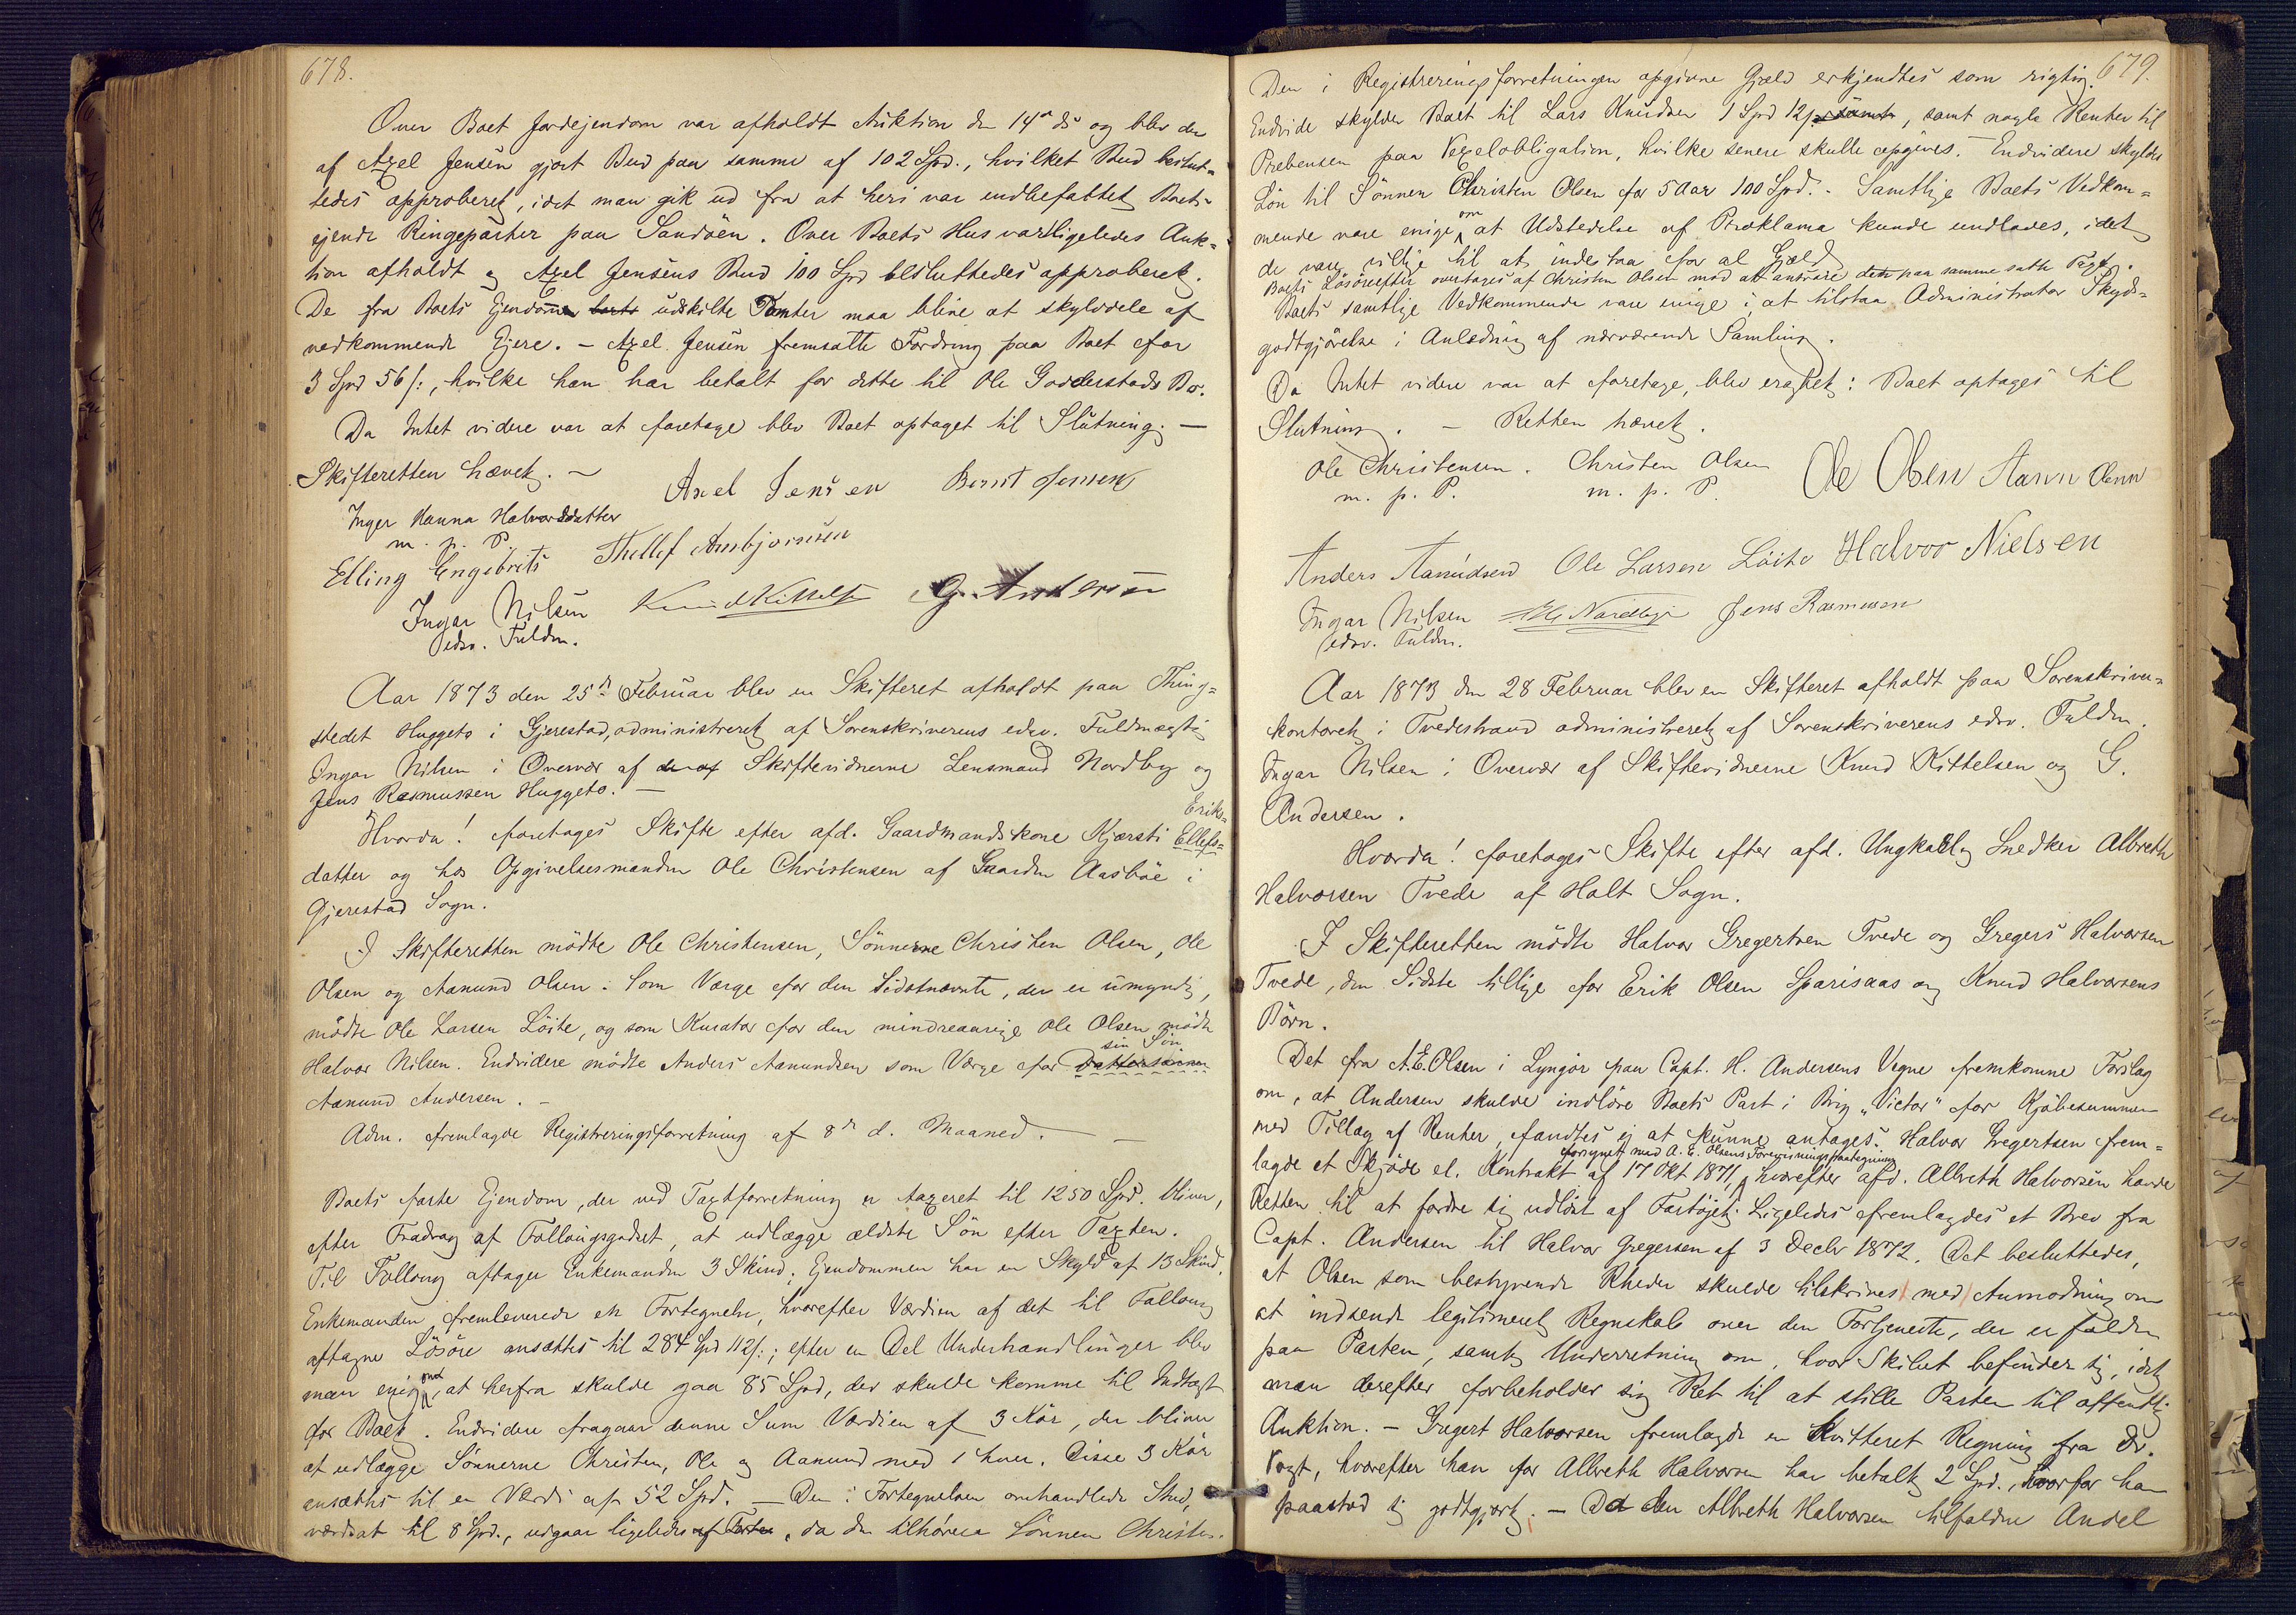 678.
Over Boet Jordejendom var afholdt Auktion den 14de ds og blev der
af Axel Jensen gjort Bud paa samme af 102 Spd., hvilket Bud beslut-
tedes approberet, idet man gik ud fra at heri var indbefattet Boets
ejende Ringeparter paa Sandöen. Over Boets Hus var ligeledes Auk-
tion afholdt og Axel Jensens Bud 100 Spd besluttedes approberet.
De fra Boets Ejendomme udskilte Parter maa blive at skylddele af
vedkommende Ejere. – Axel Jensen fremsatte Fordring paa Boet for
3 Spd 56 s:, hvilke han har betalt for dette til Ole Godderstads Bo.
Da Intet videre var at foretage blev Boet optaget til Slutning. —
Skifteretten hævet. –
Axel Jensen Bernt Jensen
Inger Hanna Halvorsdatter
m. p. P.
Elling Engebrets Thellef Ansbjornsen
Ingar Nilsen Knud Kittelsen G. Andersen
edsv. Fuldm.
Aar 1873 den 25de Februar blev en Skifteret afholdt paa Thing-
stedet Huggeto i Gjerestad, administreret af Sorenskriverens edsv. Fuldmægtig
Ingar Nilsen i Overvær af Skiftevidnerne Lensmand Nordby og
Jens Rasmussen Huggeto. —
Eriks-
Hvorda! foretages Skifte efter afd. Gaardmandskone Kjersti Ellefs-
datter og hos Opgivelsesmanden Ole Christensen af Gaarden Aasböe i
Gjerestad Sogn.
I Skifteretten mödte Ole Christensen, Sönnerne Christen Olsen, Ole
Olsen og Aanund Olsen. Som Værge for den Sidstnævnte, der er umyndig,
mödte Ole Larsen Löite, og som Kurator for den mindreaarige Ole Olsen mödte
sin Sön
Halvor Nilsen. Endvidere mödte Anders Aanundsen som Værge for Dattersönnen
Aanund Andersen. –
Adm. fremlagde Registreringsforretning af 8de d. Maaned. —
Boets faste Ejendom, der ved Taxtforretning er taxeret til 1250 Spd. bliver,
efter Fradrag af Follaugsgodset, at udlægge ældste Sön efter Taxten.
Til Follaug aftager Enkemanden 3 Skind; Ejendommen har en Skyld af 13 Skind.
Enkemanden fremleverede en Fortegnelse, hvorefter Værdien af det til Follaug
aftagne Lösöre ansættes til 284 Spd 112 s:; efter en Del Underhandlinger blev
man enig om, at herfra skulde gaa 85 Spd, der skulde komme til Indtægt
for Boet. Endvidere fragaar denne Sum Værdien af 3 Kör, der bliver
at udlægge Sönnerne Christen, Ole og Aanund med 1 hver. Disse 3 Kör
ansættes til en Værdi af 52 Spd. — Den i Fortegnelsen omhandlede Stud,
værdsat til 8 Spd., udgaar ligeledes af Taxten, da den tilhörer Sönnen Christen.
679.
Den i Registreringsforretningen opgivne Gjæld erkjendtes som rigtig.
Endvide skylder Boet til Lars Knudsen 1 Spd 12 s samt, samt nogle Renter til
Prebensen paa Vexelobligation, hvilke senere skulle opgives. – Endvidere skyldes
Lön til Sönnen Christen Olsen for 5 Aar 100 Spd. – Samtlige Boets Vedkom-
mende vare enige om at Udstedelse af Proklama kunde undlades, idet
de vare villige til at indestaa for al Gjæld.
Boets Lösöreefter overtages af Christen Olsen mod at ansvare den paa samme satte Taxt.
Boets samtlige Vedkommende vare enige i at tilstaa Administrator Skyds-
godtgjörelse i Anledning af nærværende Samling.
Da Intet videre var at foretage, blev eragtet: Boet optages til
Slutning. – Retten hævet.
Ole Christensen. Christen Olsen Ole Olsen Aanun Olsen
m. p. P. m. p. P.
Anders Aanudsen Ole Larsen Löite Halvor Nielsen
Ingar Nilsen Nordbye Jens Rasmussen
edsv. Fuldm.
Aar 1873 den 28 Februar blev en Skifteret afholdt paa Sorenskriver-
kontoret i Tvedestrand administreret af Sorenskriverens edsv. Fuldm.
Ingar Nilsen i Overvær af Skiftevidnerne Knud Kittelsen og G.
Andersen.
Hvorda! foretages Skifte efter afd. Ungkarl og Snedker Albreth
Halvorsen Tvede af Holt Sogn.
I Skifteretten mödte Halvor Gregertsen Tvede og Gregers Halvorsen
Tvede, den Sidste tillige for Erik Olsen Sparisaas og Knud Halvorsens
Börn.
Det fra A. E. Olsen i Lyngör paa Capt. H. Andersens Vegne fremkomne Forslag
om, at Andersen skulde indlöse Boets Part i Brig „Victor" for Kjöbesummen
med Tillæg af Renter, fandtes ej at kunne antages. Halvor Gregertsen frem-
forsynet med A. E. Olsens Forevisningspaategning
lagde et Skjöde el. Kontrakt af 17 Okt 1871, hvorefter afd. Albreth Halvorsen havde
Retten til at fordre sig udlöst af Fartöjet. Ligeledes fremlagdes et Brev fra
Capt. Andersen til Halvor Gregersen af 3 Decbr 1872. Det besluttedes,
at Olsen som bestyrende Rheder skulde tilskrives med Anmodning om
at indsende legitimeret Regnskab over den Fortjeneste, der er falden
paa Parten, samt Underretning om, hvor Skibet befinder sig, idet
man derefter forbeholder sig Ret til at stille Parten til offentlig
Auktion. – Gregert Halvorsen fremlagde en kvitteret Regning fra Dr.
Vogt, hvorefter han for Albreth Halvorsen har betalt 2 Spd., hvorfor han
paastod sig godtgjort. – Da den Albreth Halvorsen tilfaldne Andel